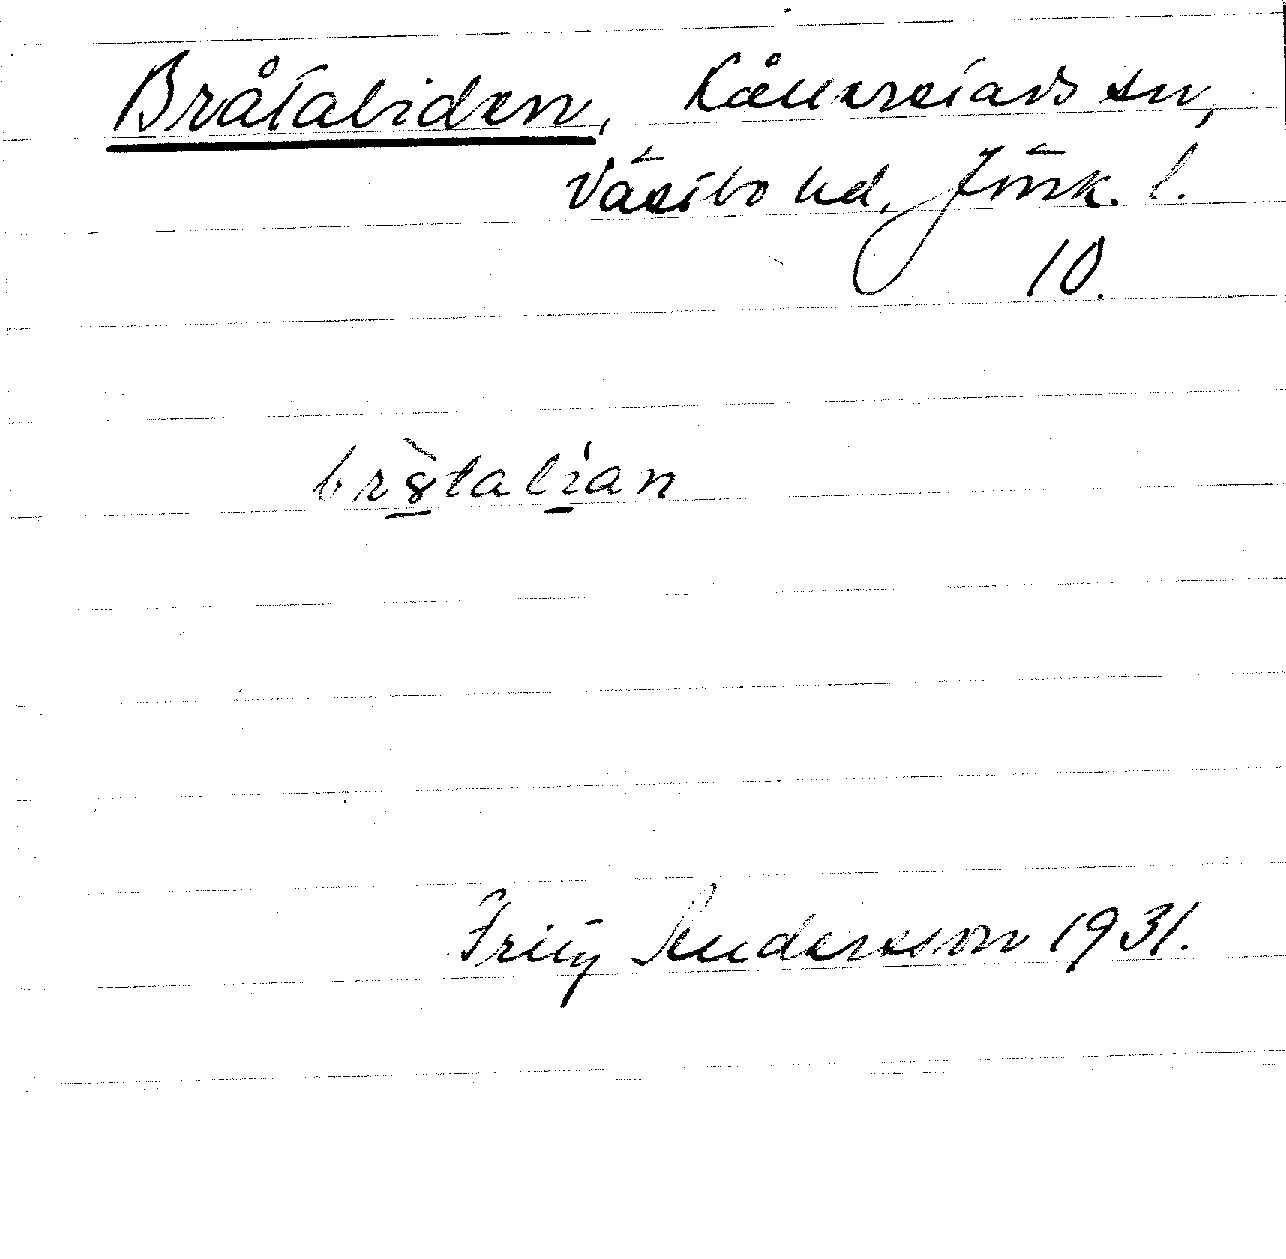 Bråtaliden, Kållerstads sn,
Västbo hd, Jönk. l.
10.
bråtalian
Fritz Andersson 1931.